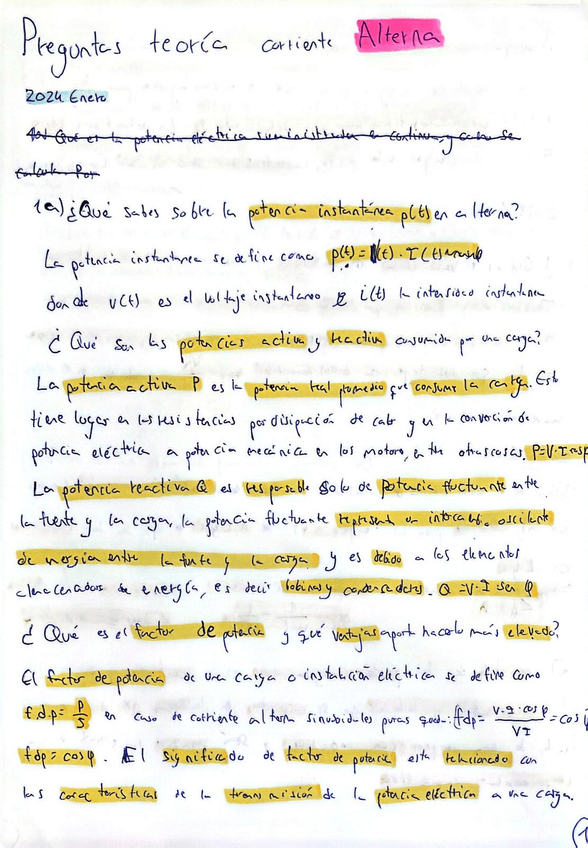 Preguntas teoría corriente Alterna
2024 Enero
1b) Qué es la potencia eléctrica suministrada en continua, y como se
calcula. Por
1a) ¿Qué sabes sobre la potencia instantánea p(t) en alterna?
La potencia instantanea se define como p(t) = V(t) · I(t)
donde v(t) es el voltaje instantaneo e i(t) la intensidad instantanea
¿Qué son las potencias activa y reactiva consumida por una carga?
La potencia activa P es la potencia real promedio que consume la carga. Esto
tiene lugar en las resistencias por disipación de calor y en la conversión de
potencia eléctrica a potencia mecánica en los motores, entre otras cosas. P=V·I cosφ
La potencia reactiva Q es responsable solo de Potencia fluctuante entre
la fuente y la carga, la potencia fluctuante representa un intercambio oscilante
de energía entre la fuente y la carga y es debido a los elementos
almacenadores de energía, es decir bobinas y condensadores. Q = V·I sen φ
¿Qué es el factor de potencia y qué ventajas aporta hacerlo más elevado?
El factor de potencia de una carga o instalación eléctrica se define como
f.d.p = P/S en caso de corriente alterna sinusoidales puras queda: fdp = V·I·cos φ / VI = cos φ
fdp = cos φ. El significado de factor de potencia esta relacionado con
las características de la transmisión de la potencia eléctrica a una carga.
1